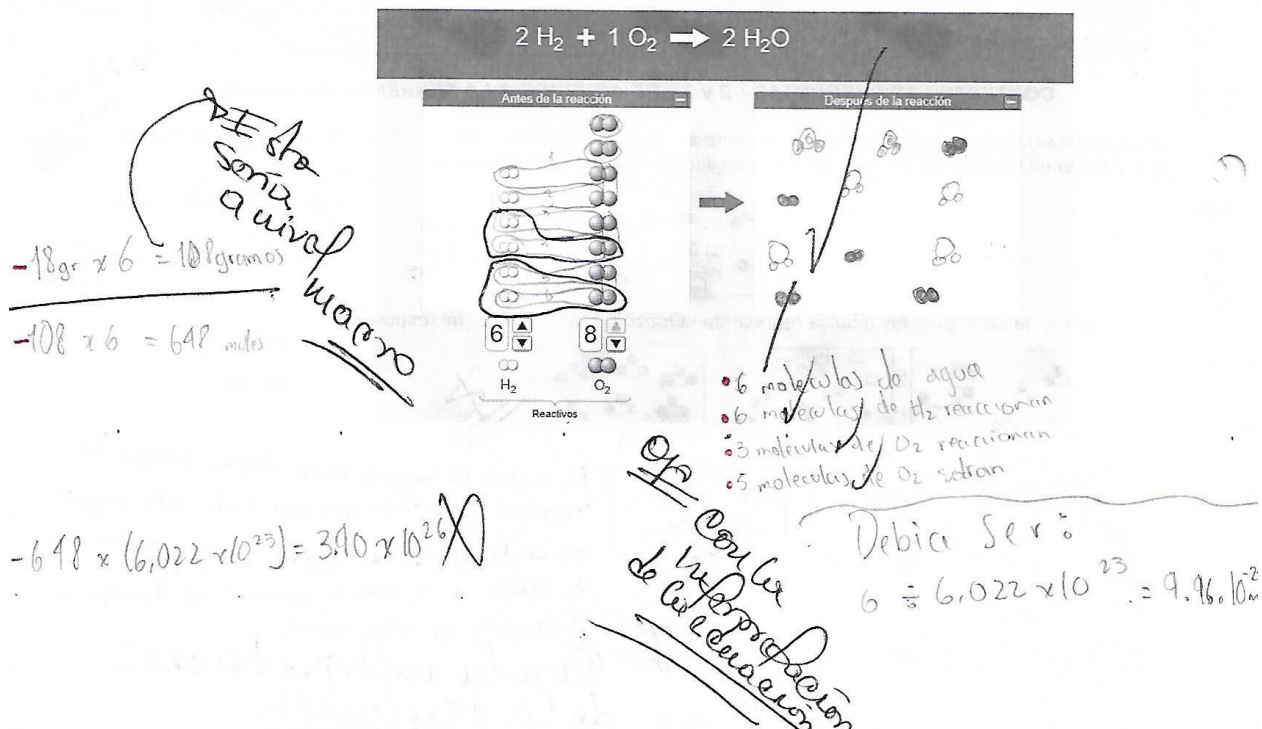 2 H₂ + 1 O₂ → 2 H₂O
Antes de la reacción
Después de la reacción
1
2
5
6
6
8
H₂
O₂
Reactivos
Esto
sería
a nivel
macro
-18gr x 6 = 108gramos
-108 x 6 = 648 moles
-648 x (6,022 x10²³) = 3.90 x 10²⁶
• 6 moleculas de agua
• 6 moleculas de H₂ reaccionan
• 3 moleculas de O₂ reaccionan
• 5 moleculas de O₂ sobran
Ojo
con la
interpretación
de la ecuación
Debia ser:
6 ÷ 6,022 x10²³ = 9.96.10⁻²